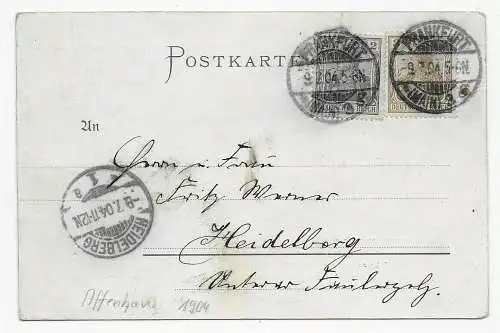 POSTKARTE
FRANKFURT
-9.7.04.5-6N.
(MAIN)
FRANKFURT
-9.7.04.5-6N.
(MAIN)
2
REICH
An
Herrn u. Frau
Fritz Werner
Heidelberg
Unterer
HEIDELBERG
-9.7.04.11-12N
1 a
Affenhaus 1904